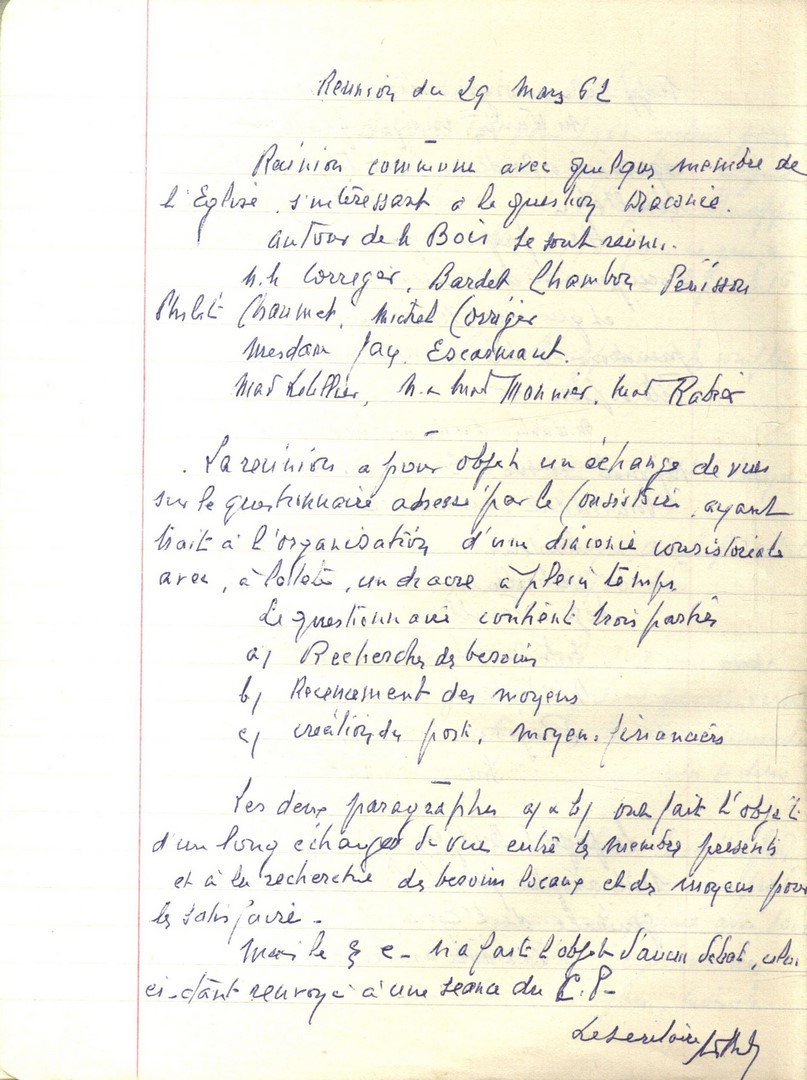 Réunion du 29 Mars 62
Réunion commune avec quelques membre de
l'Eglise, s'intéressant à la question Diaconie.
autour de Bois se sont réunis.
M.M. Corriger, Bardet Chambon Pénisson
Chaumet, Michel Corriger
Mesdam Jay, Escarmant.
Mad , M. & Mad Monnier, Mad Rabier
La reunion a pour objet un échange de vues
sur le questionnaire adressé par le Consistoire, ayant
trait à l'organisation d'une diaconie consistoriale
avec, à la tête, un diacre à plein temps
Le questionnaire contient trois parties
a) Recherches des besoins
b) Recencement des moyens
c) création du poste, moyens financiers
Les deux paragraphes a) & b) ont fait l'objet
d'un long échange de vue entre les membres présents
et à la recherche des besoins locaux et des moyens pour
les satisfaire -
Mais le § c - n'a fait l'objet d'aucun débat, celui
ci-étant renvoyé à une séance du C.P-
Le secrétaire